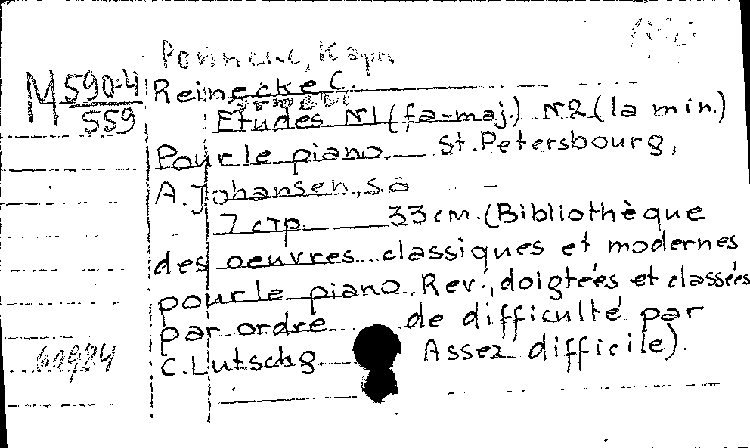 Рейнеке, Карл
М 590-4 Reinecke C.
559 Etudes N1 (fa-maj.) N2 (la min.)
Pour le piano St. Petersbourg,
A. Johansen, s.a
7 стр. 33 cm. (Bibliothèque
des oeuvres classiques et modernes
pour le piano. Rev., doigtées et classées
par ordre de difficulté par
C. Lutschg. Assez difficile).